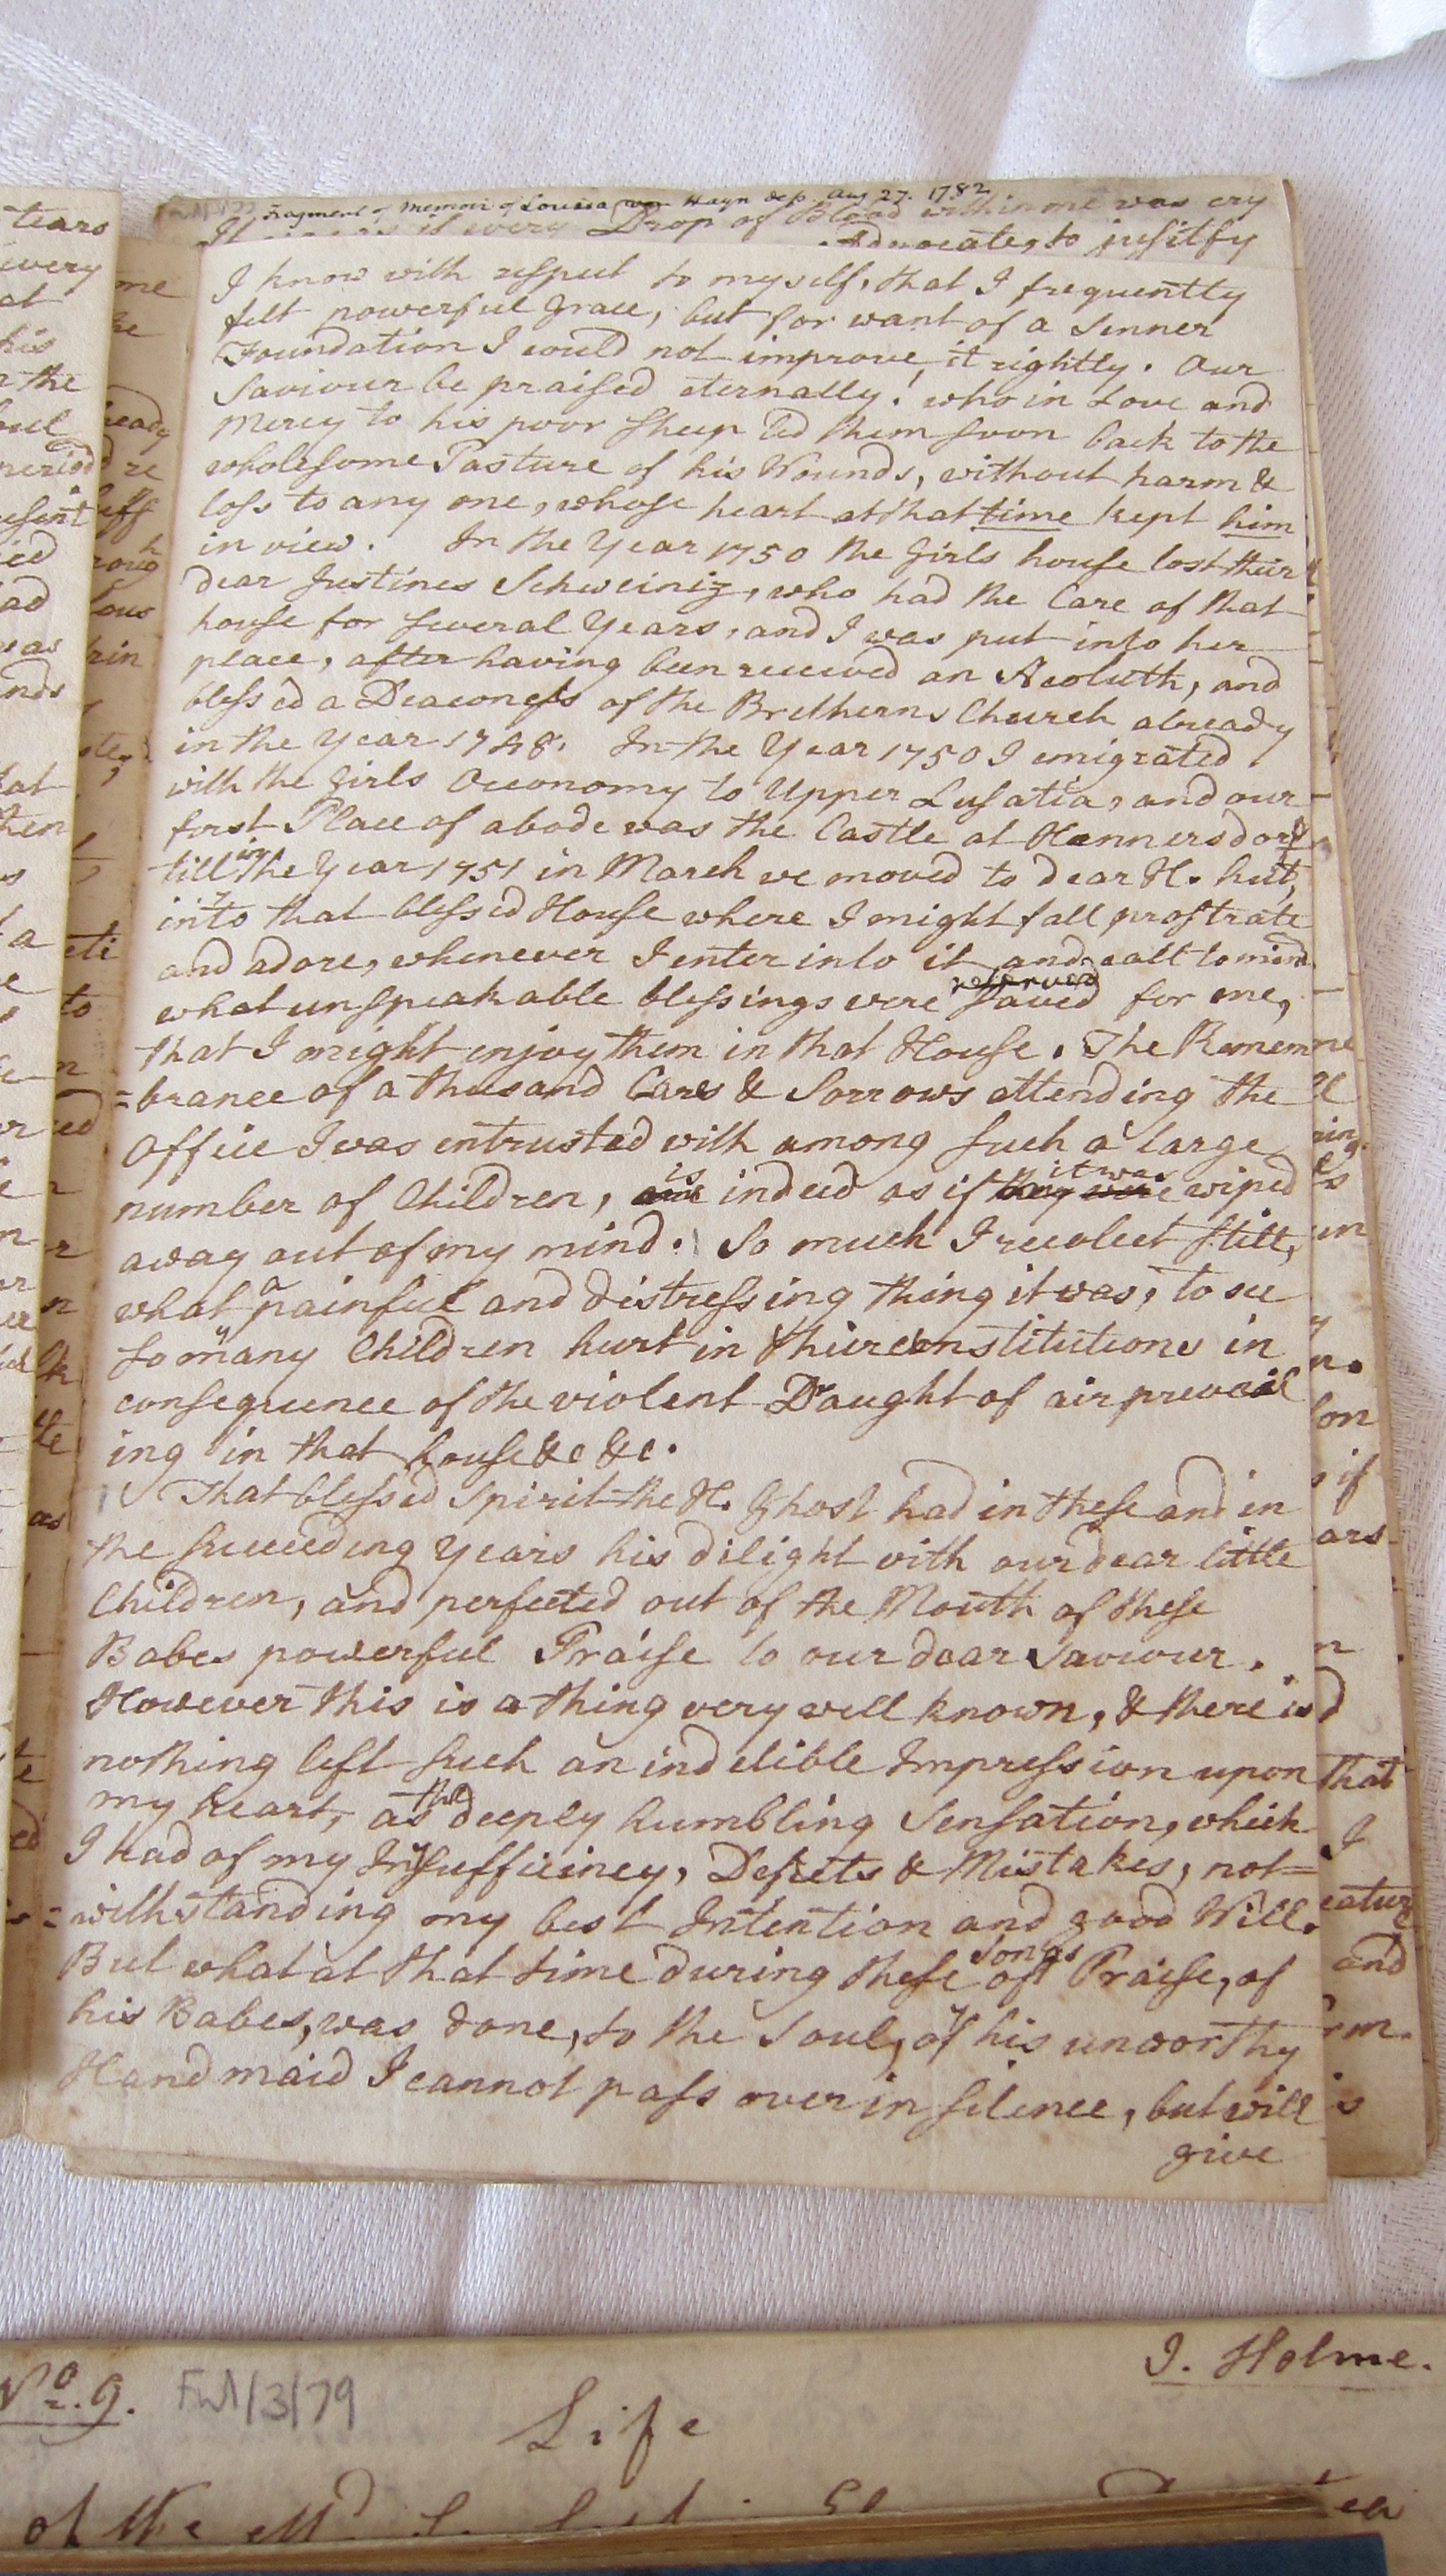 Fragment of Memoir of Louisa von Hayn dep. Aug 27. 1782
every Drop of Blood within me was cry
Advocate, to justify
I know with respect to myself, that I frequently
felt powerful grace, but for want of a Sinner
Foundation I could not improve it rightly. Our
Saviour be praised eternally! who in Love and
Mercy to his poor Sheep led them soon back to the
wholesome Pasture of his Wounds, without harm &
loss to any one, whose heart at that time kept him
in view. In the Year 1750 the Girls house lost their
dear Justines Schweiniz, who had the Care of that
house for several Years, and I was put into her
place, after having been received an Acoluth, and
blessed a Deaconess of the Bretherns Church already
in the Year 1748. In the Year 1750 I emigrated
with the Girls Oeconomy to Upper Lusatia, and our
first Place of abode was the Castle at Hennersdorf
till in the Year 1751 in March we moved to dear H. hut,
into that blessed House where I might fall prostrate
and adore, whenever I enter into it and call to mind
what unspeakable blessings were saved reserved for me,
that I might enjoy them in that House. The Remem
=brance of a thusand Cares & Sorrows attending the
Office I was entrusted with among such a large
number of Children, are is indeed as if they were it was wiped
away out of my mind. So much I recolect still,
what a painful and distressing thing it was, to see
so many Children hurt in their constitutions in
consequence of the violent Draught of air prevail
ing in that house &c &c.
That blessed Spirit the H. Ghost had in these and in
the succeeding Years his dilight with our dear little
Children, and perfected out of the Mouth of these
Babes powerful Praise to our dear Saviour.
However this is a thing very well known, & there is
nothing left such an indelible Impression upon
my heart, as the deeply humbling Sensation, which
I had of my Insufficiency, Defects & Mistakes, not=
=withstanding my best Intention and good Will.
But what at that time during these Songs of Praise, of
his Babes, was done, to the Soul, of his unworthy
Handmaid I cannot pass over in silence, but will
give
No. 9. FM/3/79
J. Holme.
Life
of the